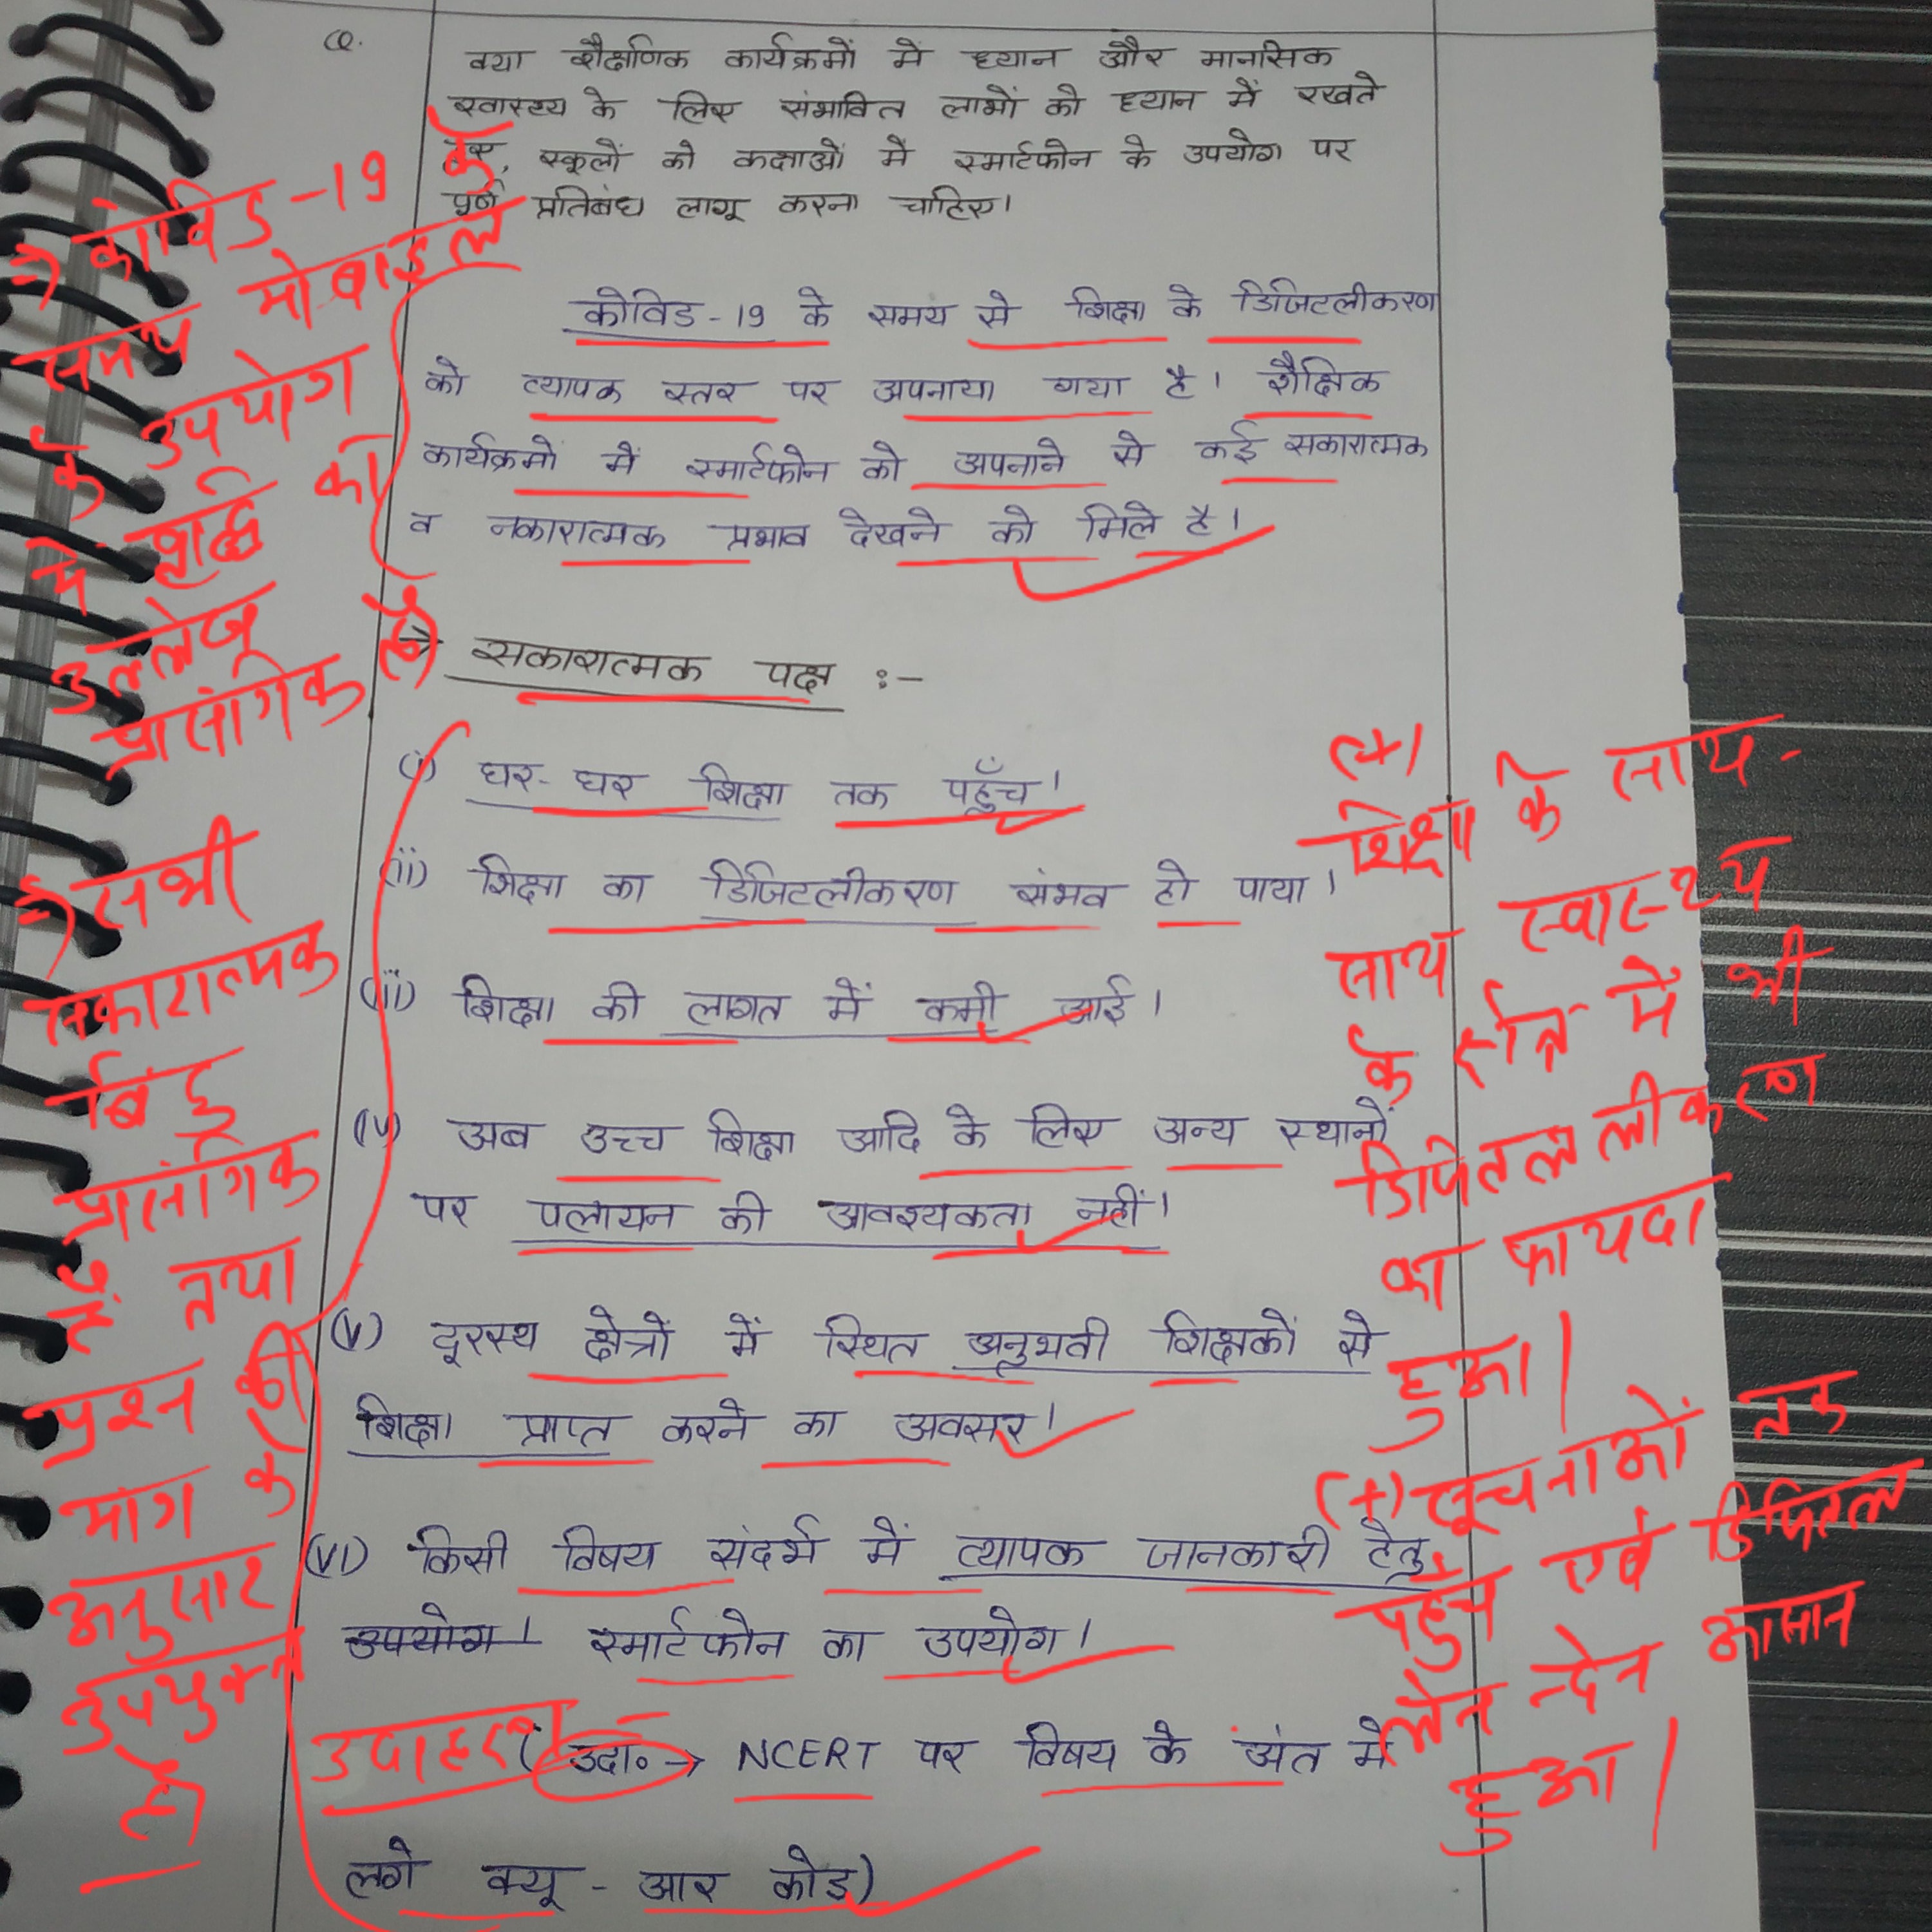 Q.
क्या शैक्षणिक कार्यक्रमों में ध्यान और मानसिक
स्वास्थ्य के लिए संभावित लाभों को ध्यान में रखते
हुए, स्कूलों को कक्षाओं में स्मार्टफोन के उपयोग पर
पूर्ण प्रतिबंध लागू करना चाहिए।
कोविड-19 के समय से शिक्षा के डिजिटलीकरण
को व्यापक स्तर पर अपनाया गया है। शैक्षिक
कार्यक्रमों में स्मार्टफोन को अपनाने से कई सकारात्मक
व नकारात्मक प्रभाव देखने को मिले है।
→ सकारात्मक पक्ष :-
(i) घर-घर शिक्षा तक पहुँच।
(ii) शिक्षा का डिजिटलीकरण संभव हो पाया।
(iii) शिक्षा की लागत में कमी आई।
(iv) अब उच्च शिक्षा आदि के लिए अन्य स्थानों
पर पलायन की आवश्यकता नहीं।
(v) दूरस्थ क्षेत्रों में स्थित अनुभवी शिक्षकों से
शिक्षा प्राप्त करने का अवसर।
(vi) किसी विषय संदर्भ में व्यापक जानकारी हेतु
उपयोग। स्मार्टफोन का उपयोग।
(उदा० → NCERT पर विषय के अंत में
लगे क्यू-आर कोड)
→ कोविड-19 के
समय मोबाइल
के उपयोग
में वृद्धि का
उल्लेख
प्रासंगिक है
→ सभी
सकारात्मक
बिंदु
प्रासंगिक
हैं तथा
प्रश्न की
मांग के
अनुसार
उपयुक्त
है
उदाहरण -
(+)
शिक्षा के साथ-
साथ स्वास्थ्य
के क्षेत्र में भी
डिजिटललीकरण
का फायदा
हुआ।
(+) सूचनाओं तक
पहुँच एवं डिजिटल
लेन-देन आसान
हुआ।